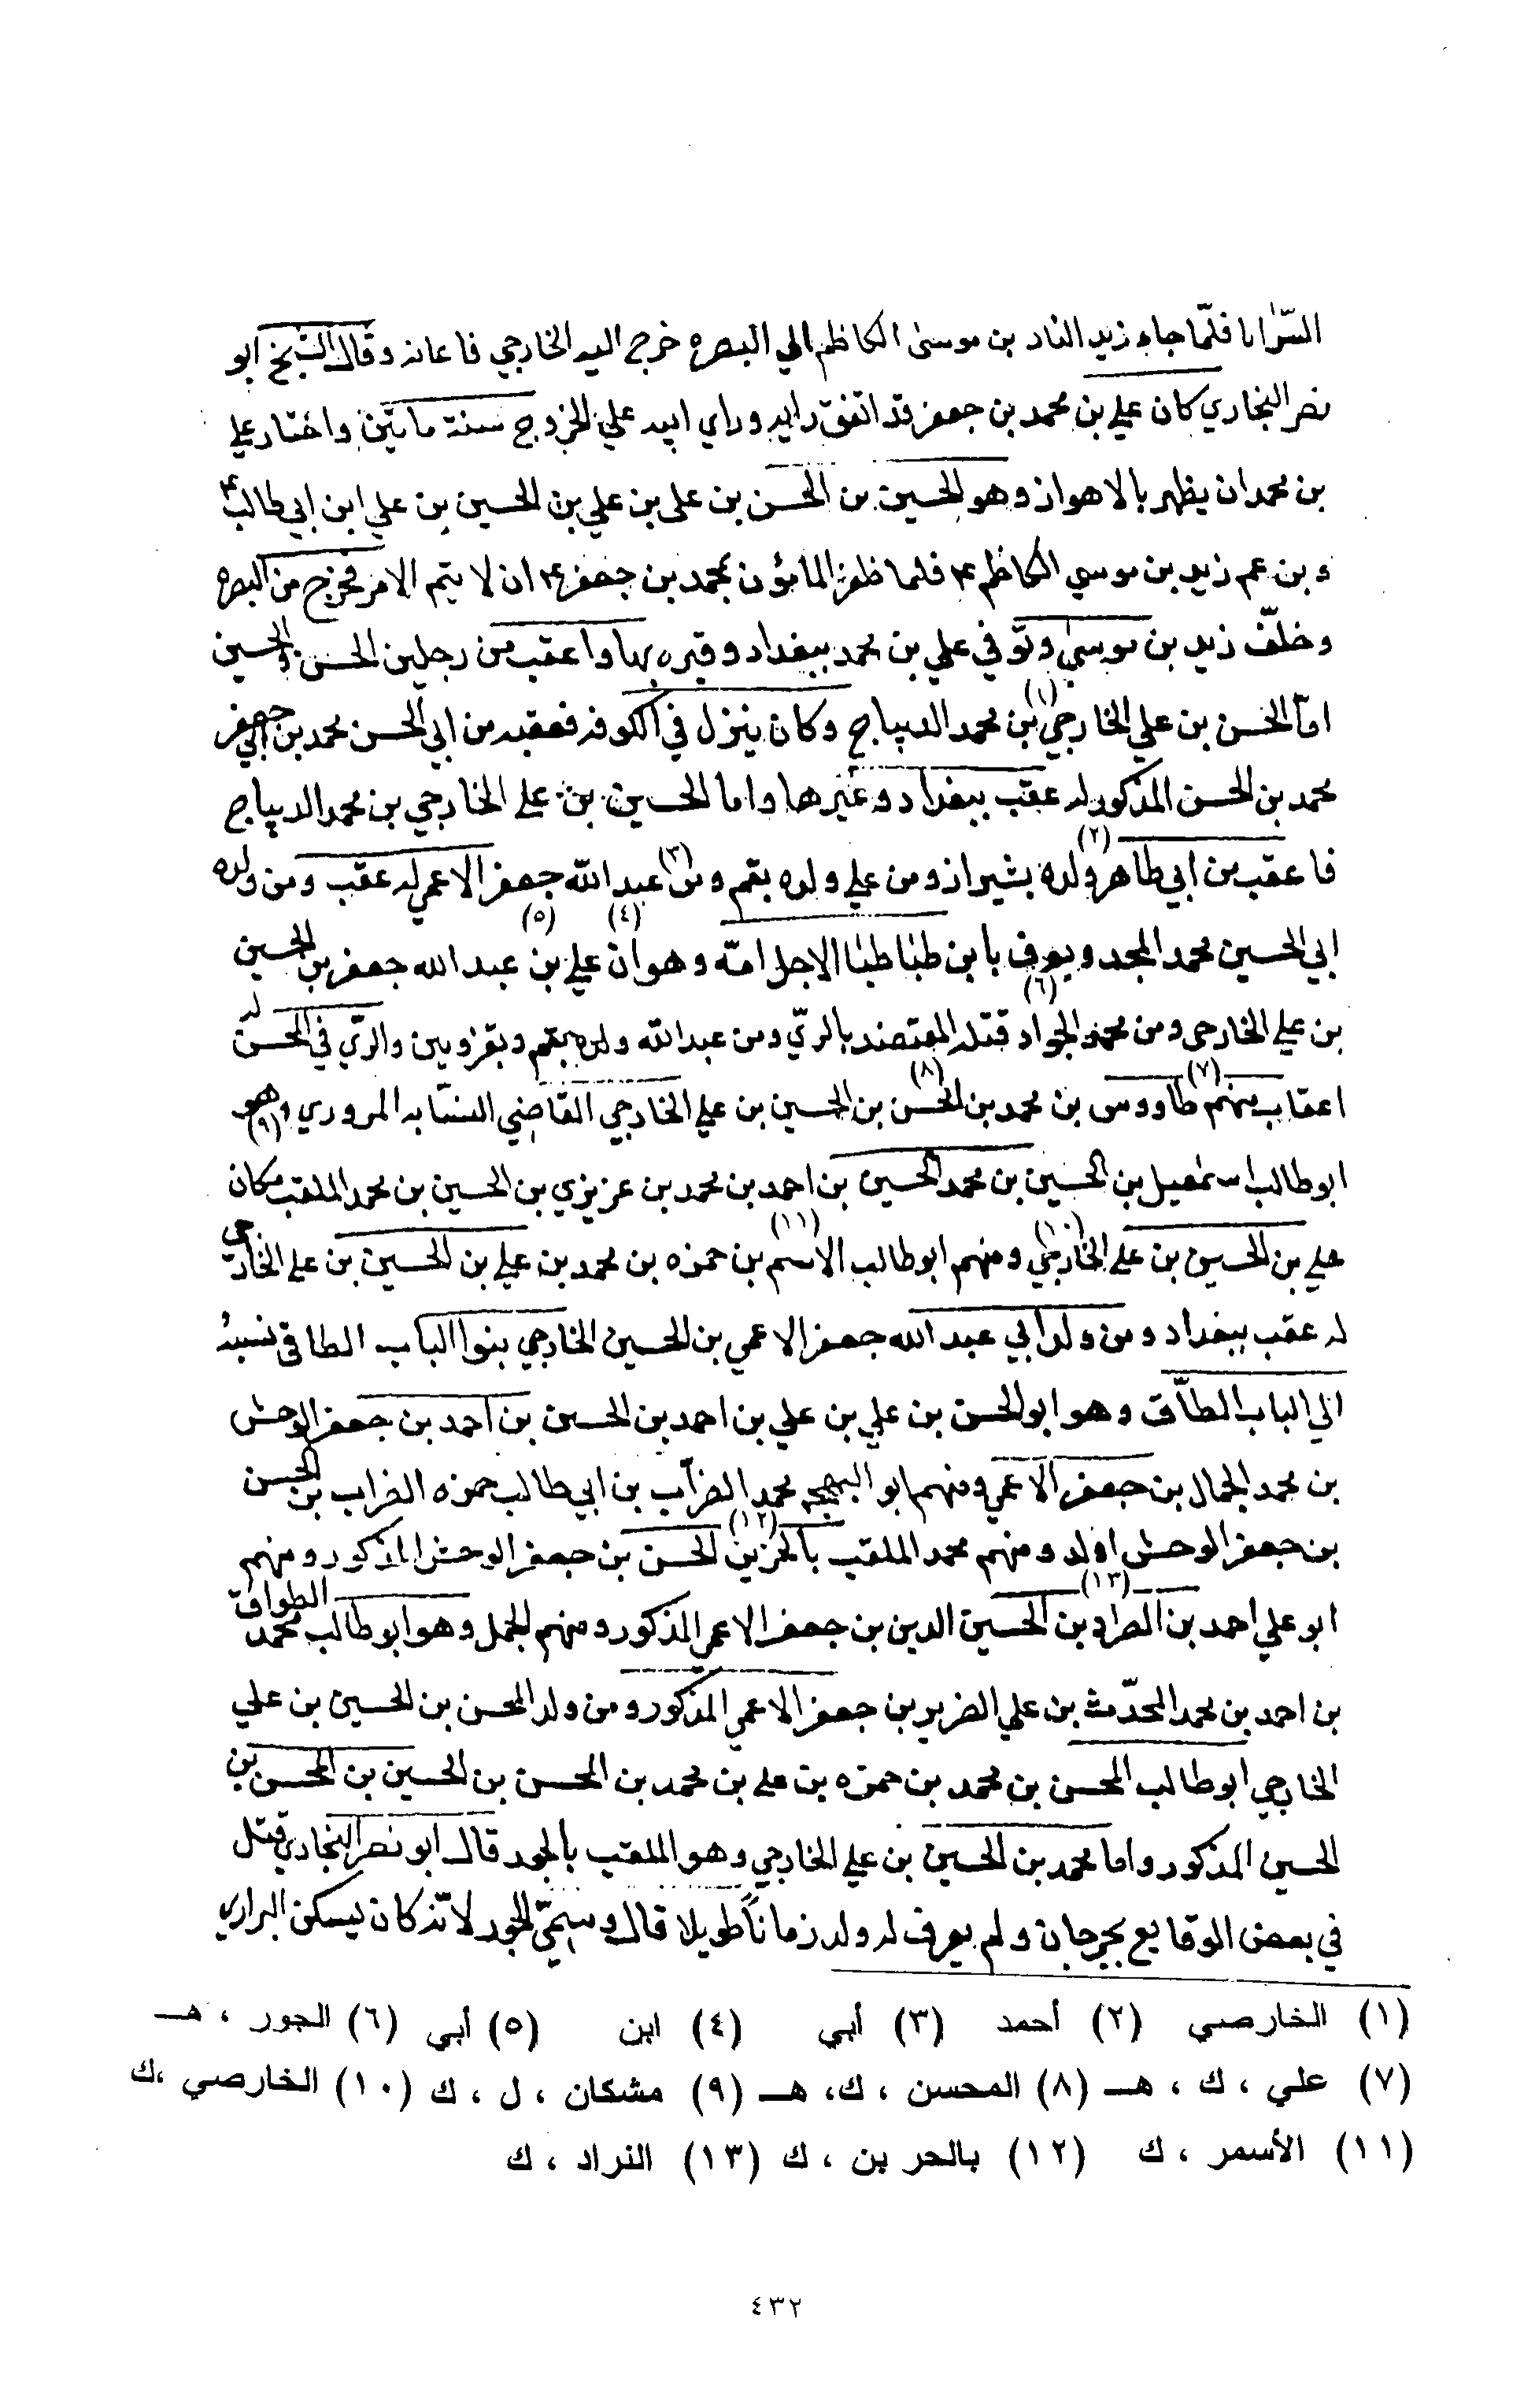 السّرايا فلمّا جاء زيد الناد بن موسىٰ الكاظم الي البصره خرج اليه الخارجي فاعانه وقال الشيخ ابو
نصر البخاري كان علي بن محمد بن جعفر قد اتفق رايه وراي ابيه علي الخروج سنة مأتين واختار علي
بن محمد ان يظهر بالاهواز وهو الحسين بن الحسن بن على بن علي بن الحسين بن علي ابن ابي طالبؑ
وبن عم زيد بن موسي الكاظم ؑ فلما ظفر المامؤن بمحمد بن جعفر ؑ ان لا يتم الامر فخرج من البصره
وخلّف زيد بن موسىٰ وتوّفي علي بن محمد ببغداد وقبره بها واعقب من رجلين الحسن والحسين
امّا الحسن بن علي الخارجي(١) بن محمد الديباج وكان ينزل في الكوفه فعقبه من ابي الحسن محمد بن ابي جعفر
محمد بن الحسن المذكور له عقب ببغداد وغيرها واما الحسين بن علي الخارجي بن محمد الديباج
فاعقب من ابي طاهر(٢) ولده بشيراز ومن علي ولده بقم ومن(٣) عبد الله جعفر الاعمي له عقب ومن ولده
ابي الحسين محمد المجد ويعرف بابن طباطبا الاجل امّه وهوان(٤) علي بن(٥) عبد الله جعفر بن الحسين
بن علي الخارجى ومن محمد الجواد(٦) قتله المعتضد بالريّ ومن عبد الله ولده بقم وبقزوين والريّ في الحسن له
اعقاب منهم(٧) طاووس بن محمد بن الحسن(٨) بن الحسين بن علي الخارجي القاضي النسّابه المروري وهو
ابو طالب اسمٰعيل بن الحسين بن محمد الحسين بن احمد بن محمد بن عزيزي بن الحسين بن محمد الملقب مكان(٩)
علي بن الحسين بن علي الخارجي(١٠) ومنهم ابو طالب الاسم(١١) بن حمزه بن محمد بن علي بن الحسين بن علي الخارجي
له عقب ببغداد ومن ولد ابي عبد الله جعفر الاعمي بن الحسين الخارجي بنوا الباب الطاقي نسبة
الي الباب الطّاق وهو ابو الحسن بن علي بن علي بن احمد بن الحسين بن احمد بن جعفر الوحش
بن محمد الجمال بن جعفر الاعمي ومنهم ابو البهجه محمد الضرّاب بن ابي طالب حمزه الضراب بن الحسن
بن جعفر الوحش اولد ومنهم محمد الملقب بالحزين(١٢) الحسن بن جعفر الوحش المذكور ومنهم
ابو علي احمد بن الطراد(١٣) بن الحسين الدين بن جعفر الاعمي المذكور ومنهم الجمل وهو ابو طالب محمد الطواف
بن احمد بن محمد المحدّث بن علي الضرير بن جعفر الاعمي المذكور ومن ولد المحسن بن الحسين بن علي
الخارجي ابو طالب المحسن بن محمد بن حمزه بن علي بن محمد بن المحسن بن الحسين بن المحسن بن
الحسين المذكور واما محمد بن الحسين بن علي الخارجي وهو الملقب بالجور قال ابو نصر البخاري قتل
في بعض الوقايع بجرجان ولم يعرف له ولد زماناً طويلا قال وسمّي الجور لانّه كان يسكن البراري
(١) الخارصي (٢) أحمد (٣) أبي (٤) ابن (٥) أبي (٦) الجور ، هـ
(٧) علي ، ك ، هـ (٨) المحسن ، ك، هـ (٩) مشكان ، ل ، ك (١٠) الخارصي ،ك
(١١) الأسمر ، ك (١٢) بالحر بن ، ك (١٣) النراد ، ك
٤٣٢